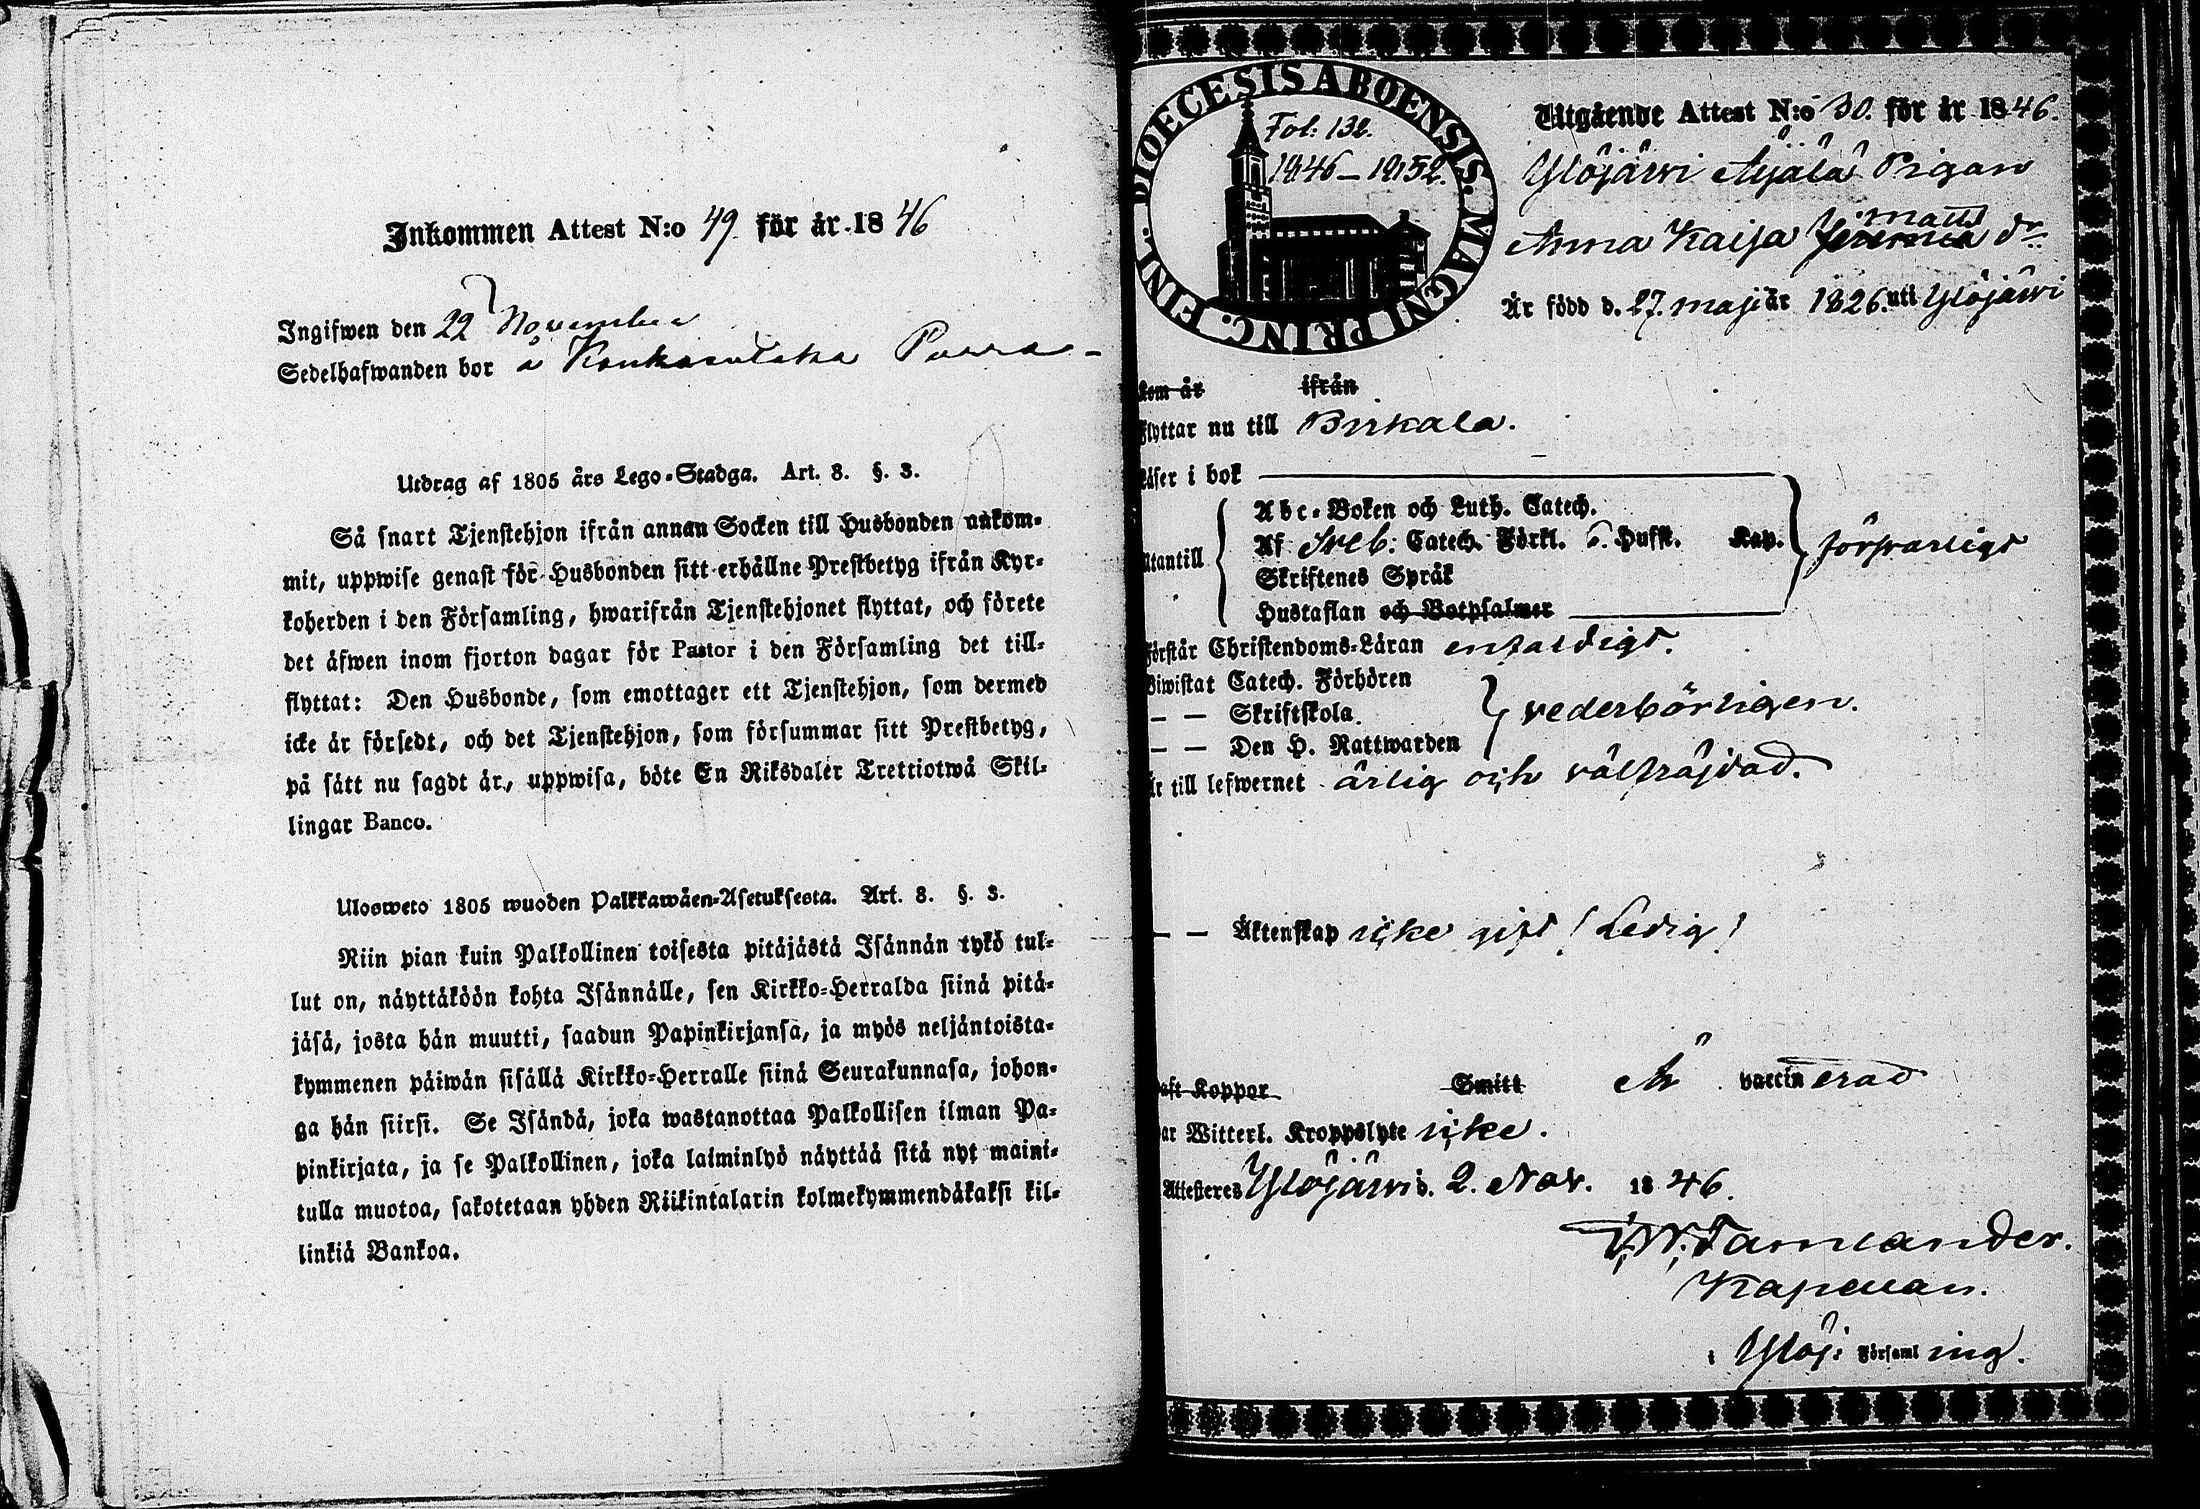 Inkommen Attest N:o 49 för år 1846
Ingifwen den 22 November
Sedelhafwanden bor å
Utdrag af 1805 års Lego-Stadga. Art. 8. §. 3.
Så snart Tjenstehjon ifrån annan Socken till Husbonden ankom-
mit, uppwise genast för Husbonden sitt erhållne Prestbetyg ifrån Kyr-
koherden i den Församling, hwarifrån Tjenstehjonet flyttat, och förete
det äfwen inom fjorton dagar för Pastor i den Församling det till-
flyttat: Den Husbonde, som emottager ett Tjenstehjon, som dermed
icke är försedt, och det Tjenstehjon, som försummar sitt Prestbetyg,
på sätt nu sagdt är, uppwisa, böte En Riksdaler Trettiotwå Skil-
lingar Banco.
Ulosweto 1805 wuoden Palkkawäen-Asetuksesta. Art. 8. §. 3.
Niin pian kuin Palkollinen toisesta pitäjästä Isännän tykö tul-
lut on, näyttäköön kohta Isännälle, sen Kirkko-Herralda siinä pitä-
jäsä, josta hän muutti, saadun Papinkirjansa, ja myös neljäntoista-
kymmenen päiwän sisällä Kirkko-Herralle siinä Seurakunnasa, johon-
ga hän siirsi. Se Isändä, joka wastanottaa Palkollisen ilman Pa-
pinkirjata, ja se Palkollinen, joka laiminlyö näyttää sitä nyt maini-
tulla muotoa, sakotetaan yhden Riikintalarin kolmekymmendäkaksi kil-
linkiä Bankoa.
DIOECESIS ABOENSIS. MAGNI PRINC. FINL.
Fol: 132.
1846–1852.
Utgående Attest N:o 30. för år 1846.
Ylöjärvi Äijälä Pigan
matts
Anna Kaisa dr
Är född d. 27. maji år 1826. uti Ylöjärvi
kom år ifrån
Flyttar nu till Birkala.
Läser i bok
Abc-Boken och Luth. Catech.
Utantill Af Sveb: Catech. Förkl. 6. Hufst. Kap. försvarligt
Skriftenes Språk
Hustaflan och Botpsalmer
Förstår Christendoms-Läran enfaldigt.
Biwistat Catech. Förhören
— — Skriftskola. vederbörligen.
— — Den H. Nattwarden
Är till lefwernet ärlig och välfräjdad.
— — Äktenskap icke gift! Ledig!
aft Koppor Smitt Är vaccinerad
ar Witterl. Kroppslyte icke.
Attesteres Ylöjärvi d. 2. Nov. 1846.
Tamlander.
Kapellan.
i Ylöj: Församling.